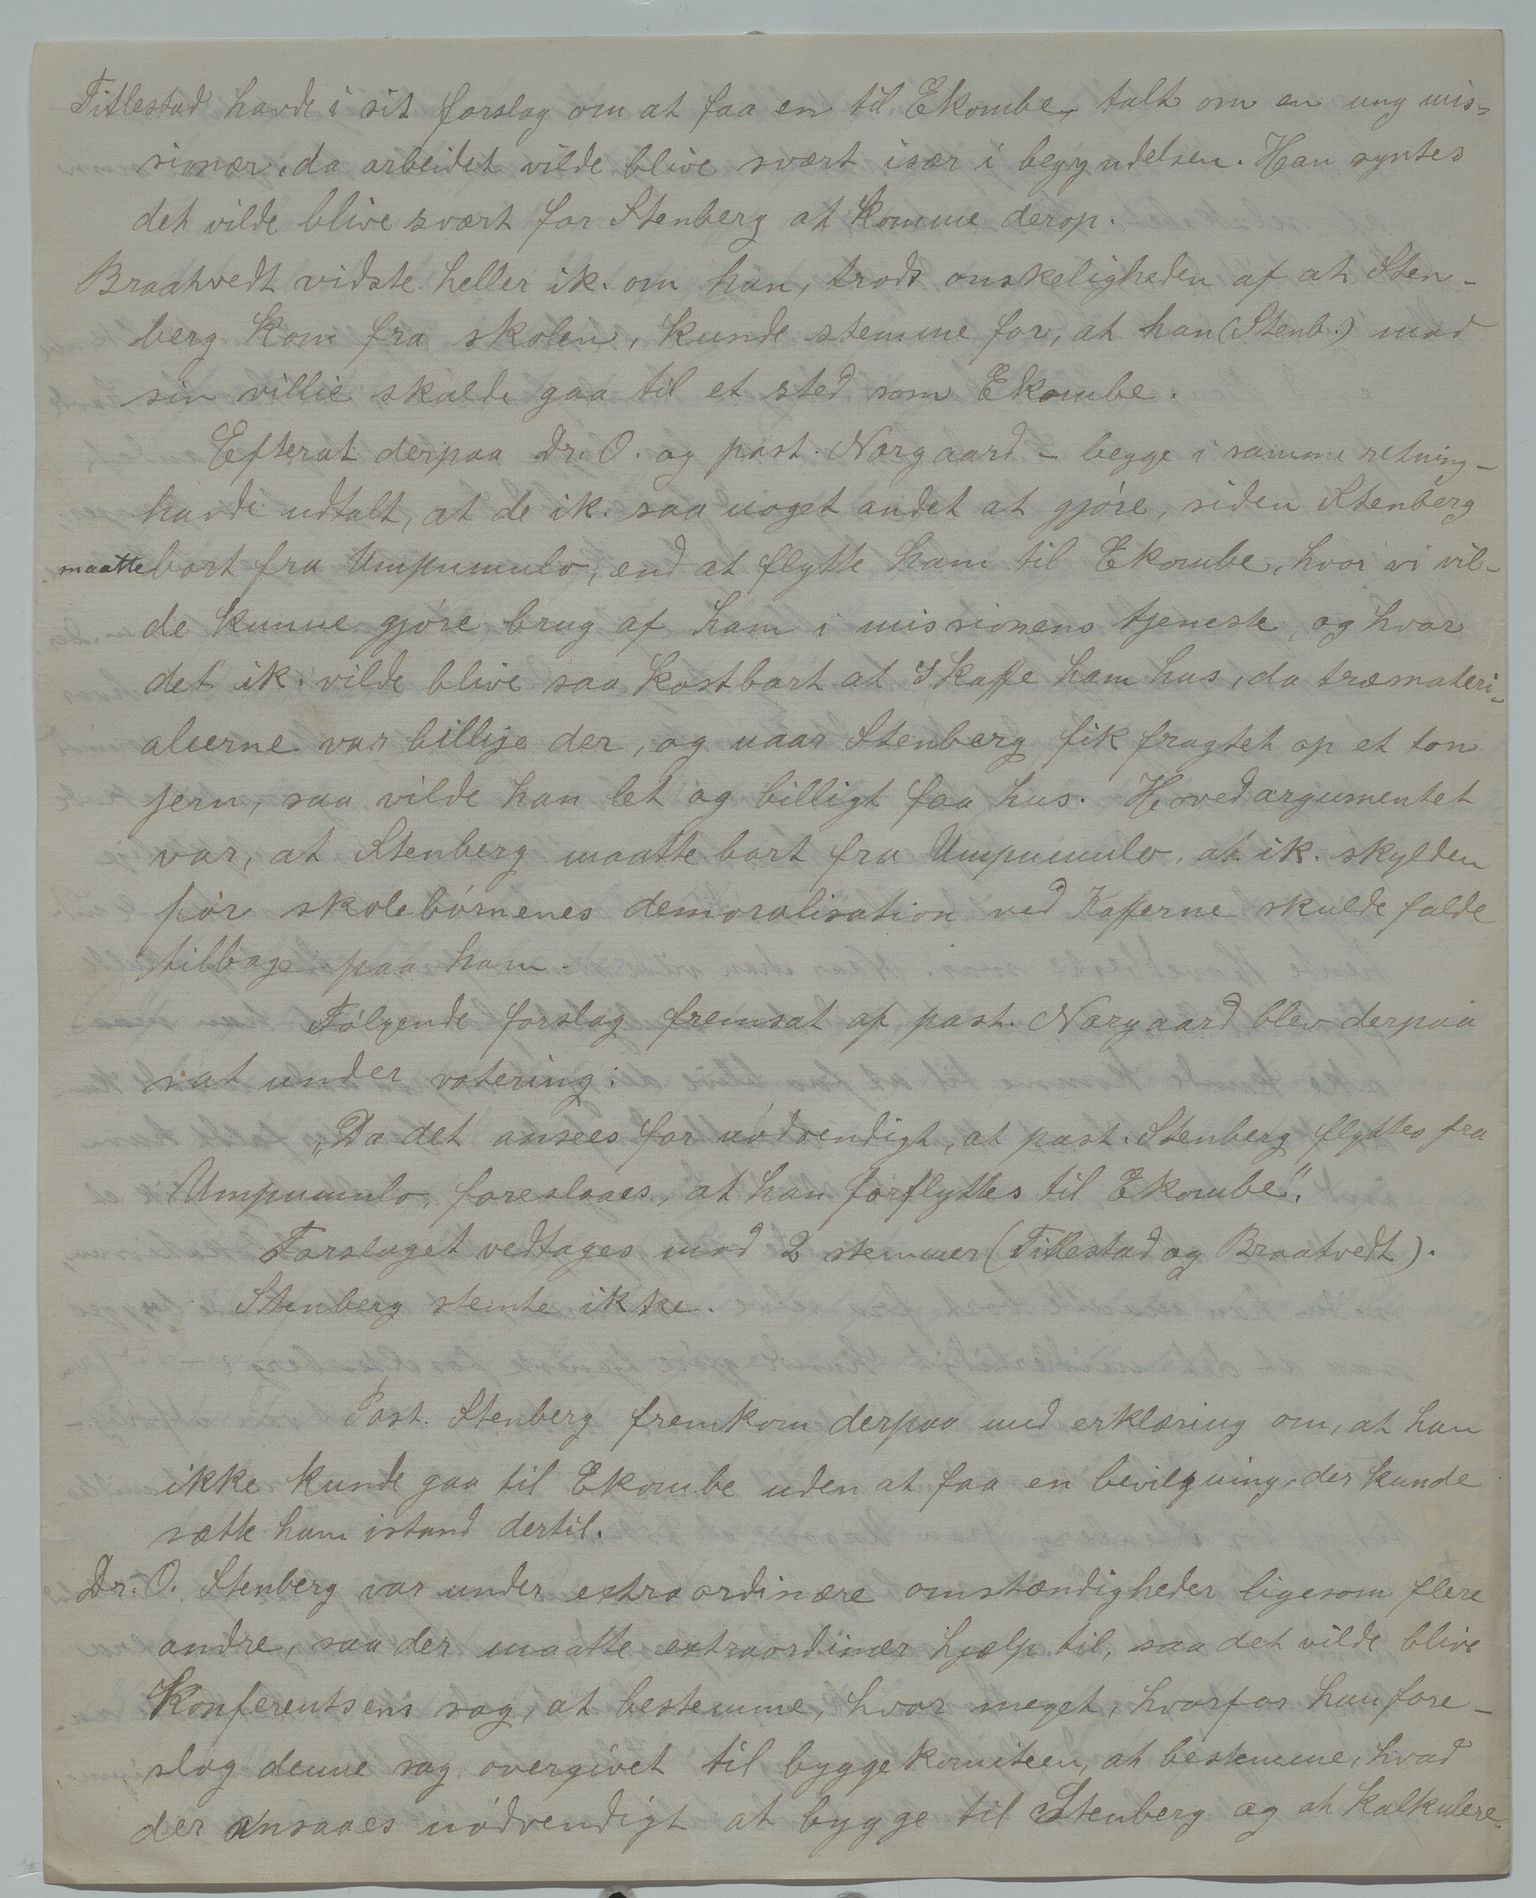 Titlestad havde i sit forslag om at faa en til Ekombe, talt om en ung mis-
sionær, da arbeidet vilde blive svært især i begyndelsen. Han syntes
det vilde blive svært for Stenberg at komme derop.
Braatvedt vidste heller ik. om han, trods onskeligheden af at Sten-
berg kom fra skolen, kunde stemme for, at han (Stenb.) mod
sin villie skulde gaa til et sted som Ekombe.
Efterat derpaa Dr. O. og past. Norgaard - begge i samme retning -
havde udtalt, at de ik. saa noget andet at gjøre, siden Stenberg
maatte bort fra Umpumulo, end at flytte ham til Ekombe, hvor vi vil-
de kunne gjøre brug af ham i missionens tjeneste, og hvor
det ik. vilde blive saa kostbart at skaffe ham hus, da træmateri-
alierne var billige der, og naar Stenberg fik fragtet op et ton
jern, saa vilde han let og billigt faa hus. Hovedargumentet
var, at Stenberg maatte bort fra Umpumulo, at ik. skylden
for skolebørnenes demoralisation ved Kafferne skulde falde
tilbage paa ham.
Følgende forslag fremsat af past. Norgaard blev derpaa
sat under votering:
„Da det ansees for nødvendigt, at past. Stenberg flyttes fra
Umpumulo, foreslaaes, at han forflyttes til Ekombe".
Forslaget vedtages mod 2 stemmer (Titlestad og Braatvedt).
Stenberg stemte ikke.
Past. Stenberg fremkom derpaa med erklæring om, at han
ikke kunde gaa til Ekombe uden at faa en bevilgning, der kunde
sætte ham istand dertil.
Dr. O. Stenberg var under extraordinære omstændigheder ligesom flere
andre, saa der maatte extraordinær hjælp til, saa det vilde blive
Konferentsens sag, at bestemme, hvor meget, hvorfor han fore-
slog denne sag overgivet til byggekomiteen, at bestemme, hvad
der ansaaes nødvendigt at bygge til Stenberg og at kalkulere